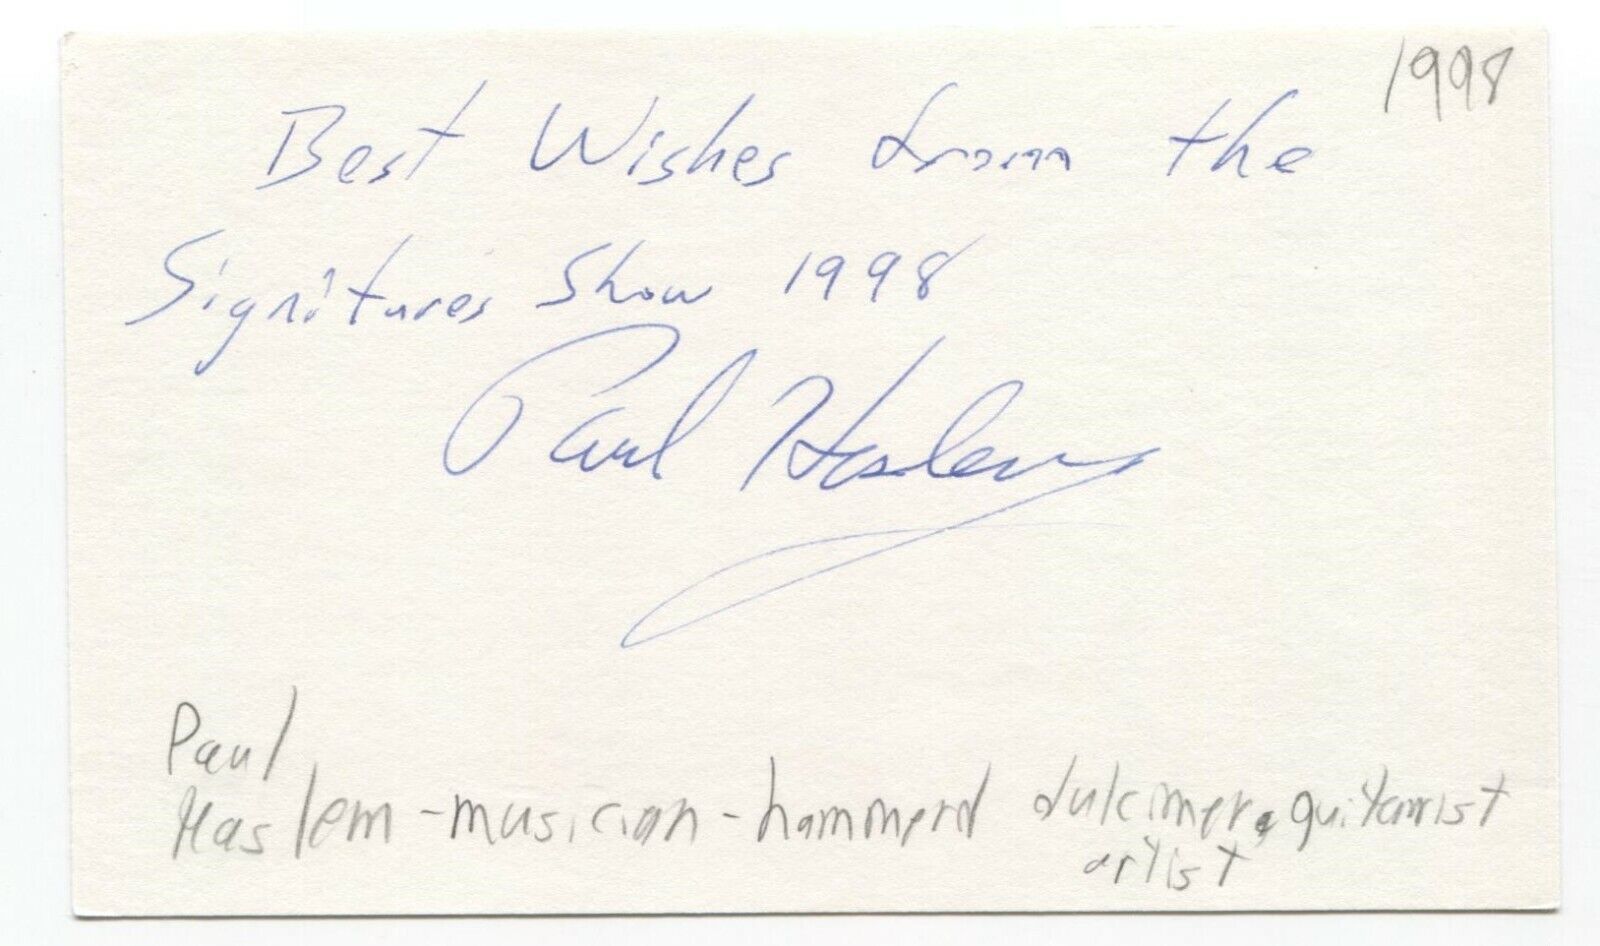 1998
Best Wishes from the
Signitures Show 1998
Paul Haslem
Paul
Haslem - musician - hammerd dulcimer & guitarist
artist